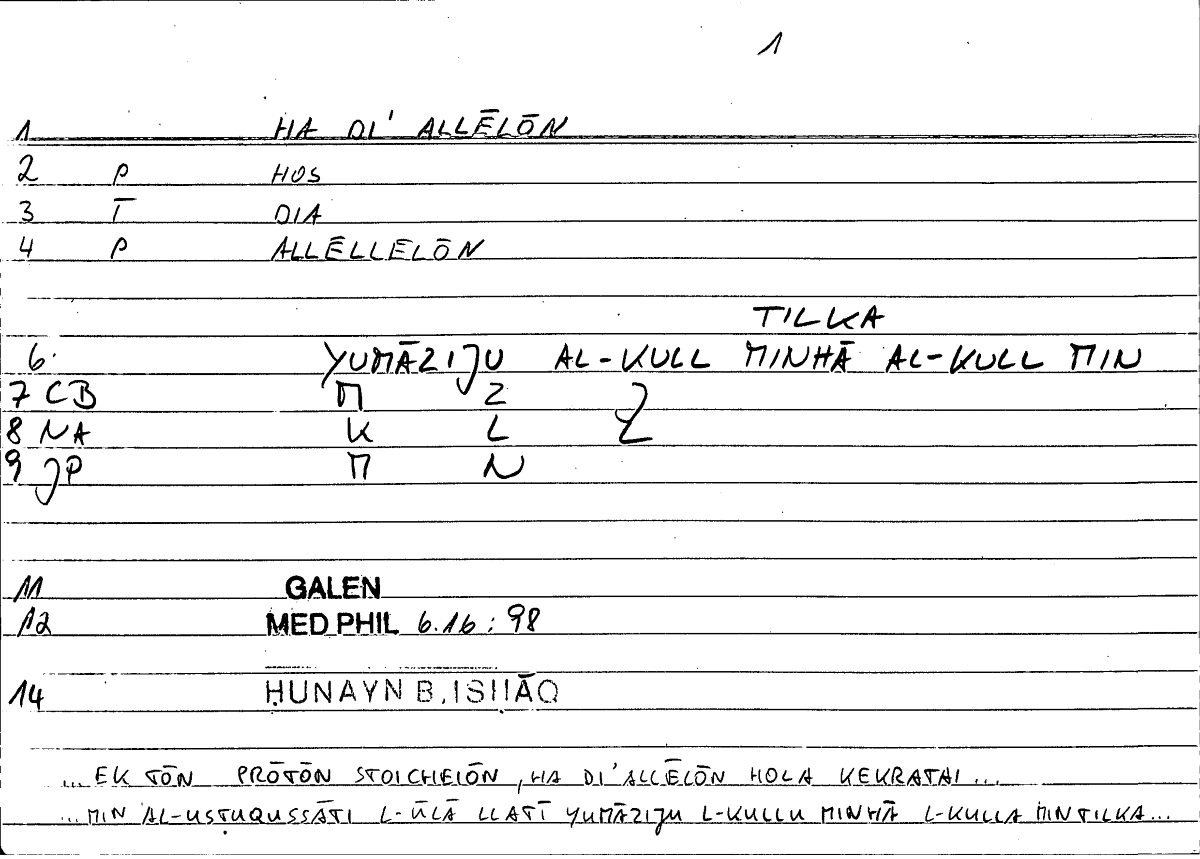 1
1 HA DI' ALLĒLŌN
2 P HOS
3 T DIA
4 P ALLĒLLELŌN
TILKA
6. YUMĀZIJU AL-KULL MINHĀ AL-KULL MIN
7 CB M Z
8 NA K L
9 JP M N
11 GALEN
12 MED PHIL 6.16 : 98
14 ḤUNAYN B. ISḤĀQ
... EK TŌN PRŌTŌN STOICHEIŌN, HA DI' ALLĒLŌN HOLA KEKRATAI ...
... MIN AL-USTUQUSSĀTI L-ŪLĀ LLATĪ YUMĀZIJU L-KULLU MINHĀ L-KULLA MIN TILKA ...